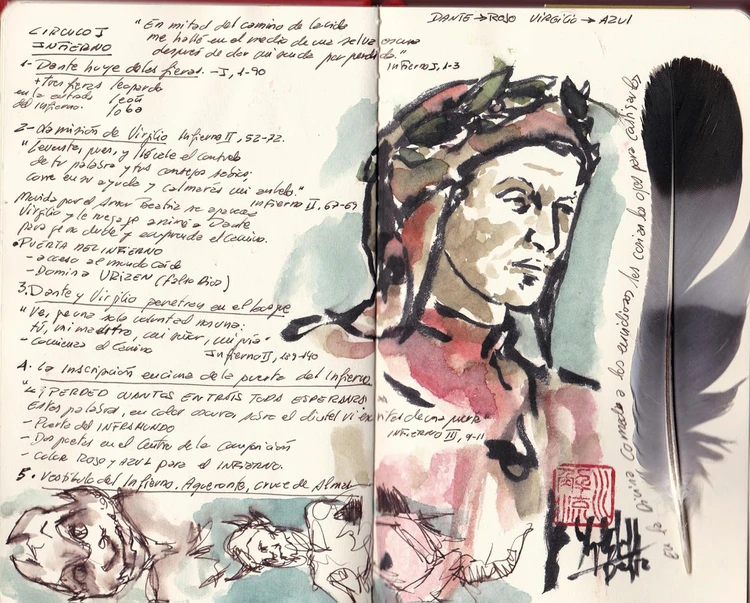 CIRCULO I
INFIERNO
"En mitad del camino de la vida
me hallé en el medio de una selva oscura
después de dar mi senda por perdida."
Infierno I, 1-3
DANTE → ROJO VIRGILIO → AZUL
1- Dante huye de las fieras. - I, 1-90
+ tres fieras leopardo
en la entrada león
del infierno. loba
2- La misión de Virgilio Infierno II, 52-72.
"Levante, pues, y
de tu palabra, y
corre en su ayuda y calmarás mi anhelo."
Infierno II, 67-69
Movida por el Amor Beatriz se aparece
Virgilio y le anime a Dante
para que no dude y emprenda el camino.
• PUERTA DEL INFIERNO
- acceso al mundo caído
- Domina URIZEN (falso Dios)
3. Dante y Virgilio penetran en el bosque
"Ve, que una sola voluntad nos una:
tú, mi maestro, mi señor, mi guía"
- Comienza el Camino Infierno II, 139-140
4. La Inscripción encima de la puerta del Infierno
"¡PERDED CUANTOS ENTRÁIS TODA ESPERANZA!
Estas palabras, en color oscuro, sobre el dintel vi escritas de una puerta"
INFIERNO III, 9-11
- Puerta del INFRAMUNDO
- Dos poetas en el Centro de la Composición
- Color ROJO y AZUL para el INFIERNO.
5. Vestíbulo del Infierno, Aqueronte, cruce de Almas
En la Divina Comedia a los envidiosos les cosían los ojos para castigarles